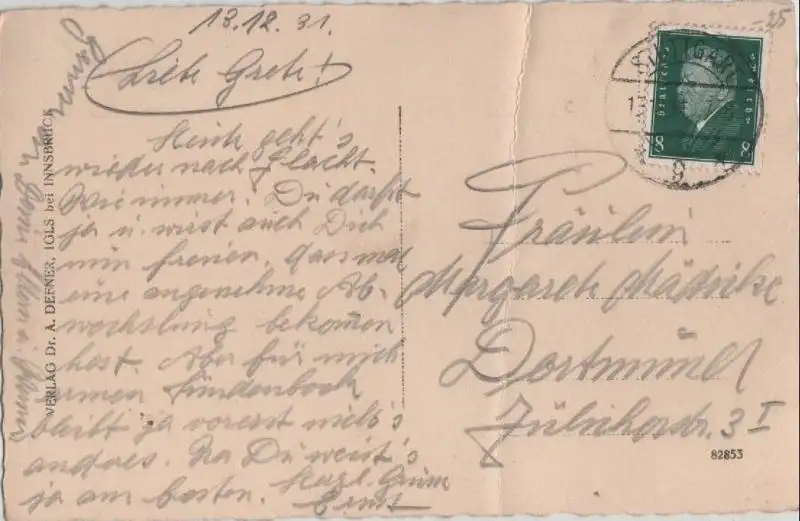 13.12.31.
Liebe Grete!
Heute geht's
wieder nach Flacht.
Wie immer. Du darfst
ja u. wirst auch Dich
nun freuen, dass mal
eine angenehme Ab-
wechslung bekommen
hast. Aber für mich
armen Sündenbock
bleibt ja vorerst nichts
andres. Na Du weist's
ja am besten. Herzl. Grüsse
Ernst
VERLAG Dr. A. DEFNER, IGLS bei INNSBRUCK
Fräulein
Margarete
Dortmund
Jülicherstr. 3 I
82853
25
STUTTGART
9
Deutsches Reich
8 8